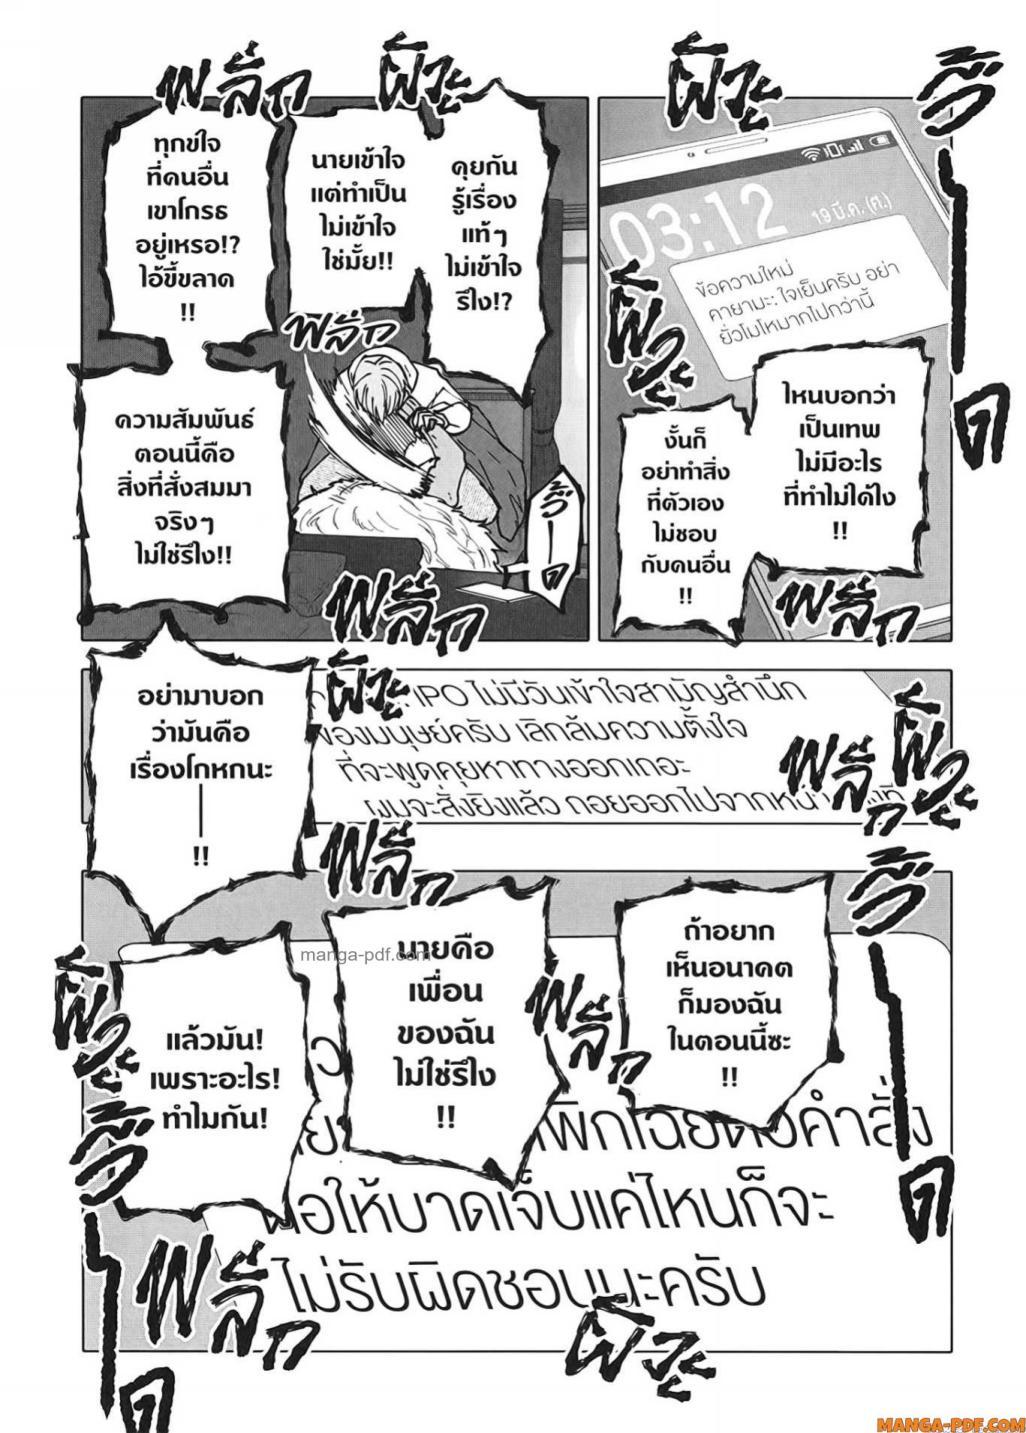 ผิวะ
วี้
ด
03:12
19 มี.ค. (ศ.)
ข้อความใหม่
คายามะ: ใจเย็นครับ อย่า
ยั่วโมโหมากไปกว่านี้
ไหนบอกว่า
เป็นเทพ
ไม่มีอะไร
ที่ทำไม่ได้ไง
!!
ผิวะ
งั้นก็
อย่าทำสิ่ง
ที่ตัวเอง
ไม่ชอบ
กับคนอื่น
!!
พลึ่ก
ผิวะ
พลึ่ก
คุยกัน
รู้เรื่อง
แท้ๆ
ไม่เข้าใจ
รึไง!?
นายเข้าใจ
แต่ทำเป็น
ไม่เข้าใจ
ใช่มั้ย!!
ทุกข์ใจ
ที่คนอื่น
เขาโกรธ
อยู่เหรอ!?
ไอ้ขี้ขลาด
!!
พลึ่ก
ความสัมพันธ์
ตอนนี้คือ
สิ่งที่สั่งสมมา
จริงๆ
ไม่ใช่รึไง!!
วี้
ด
พลึ่ก
อย่ามาบอก
ว่ามันคือ
เรื่องโกหกนะ
!!
ผิวะ
IPO ไม่มีวันเข้าใจสามัญสำนึก
ของมนุษย์ครับ เลิกล้มความตั้งใจ
ที่จะพูดคุยหาทางออกเถอะ
ผมจะสั่งยิงแล้ว ถอยออกไปจากหน้า
พลึ่ก
ผิวะ
พลึ่ก
วี้
ด
ถ้าอยาก
เห็นอนาคต
ก็มองฉัน
ในตอนนี้ซะ
!!
พลึ่ก
นายคือ
เพื่อน
ของฉัน
ไม่ใช่รึไง
!!
แล้วมัน!
เพราะอะไร!
ทำไมกัน!
ผิวะ
วี้
ด
พิกเฉยต่อคำสั่ง
ต่อให้บาดเจ็บแค่ไหนก็จะ
ไม่รับผิดชอบนะครับ
พลึ่ก
ผิวะ
manga-pdf.com
MANGA-PDF.COM